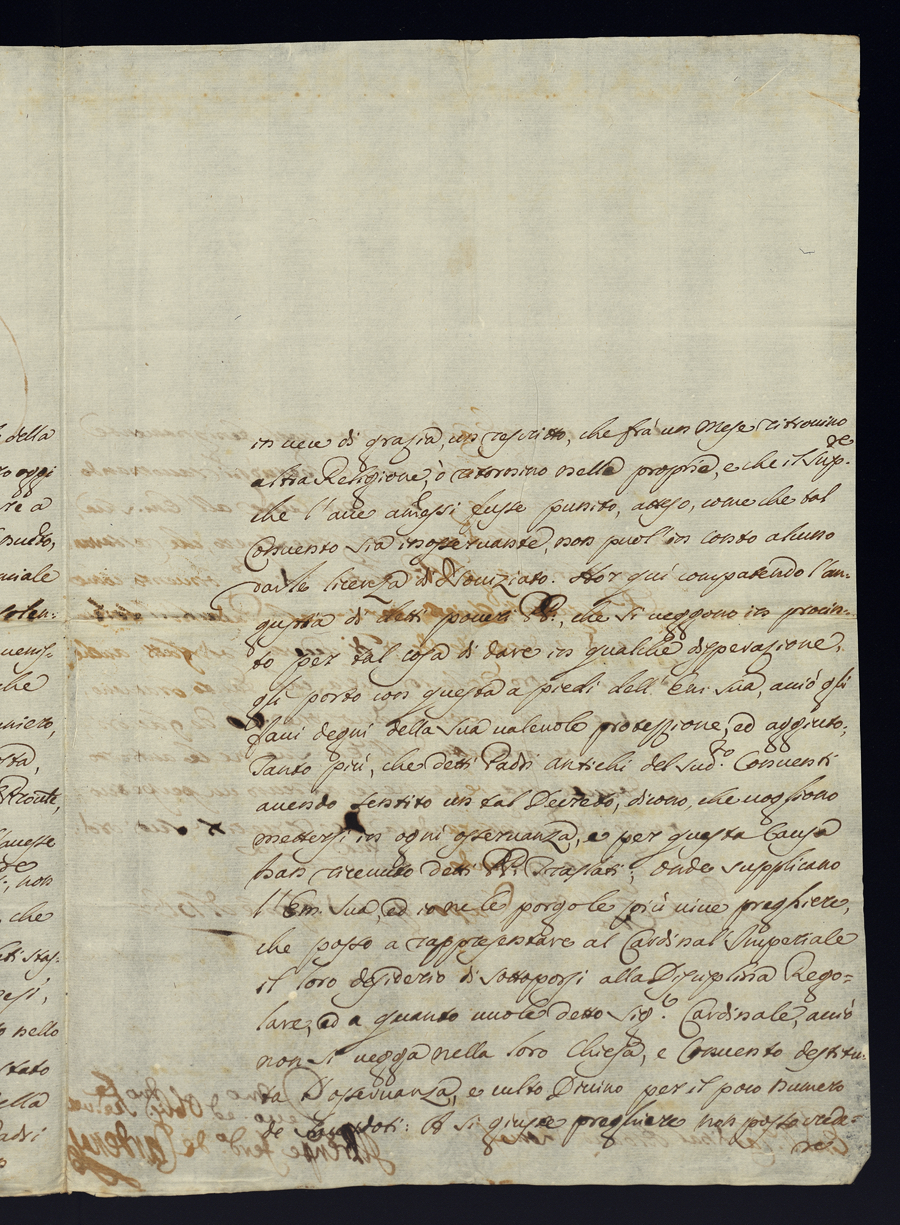 in vece di grazia, un rescritto, che frà un mese ritrovino
altra Religione, ò ritornino nella propria, e che il Sup.re
che l'ave amessi fusse punito, atteso, come che tal
Convento sia inosservante, non puol in conto alcuno
darle licenza di Noviziato. Hor quì compatendo l'an-
gustia di detti poveri PP.i, che si veggono in procin-
to per tal cosa di dare in qualche disperazione,
gli porto con questa a piedi dell'Em. Sua, acciò gli
facci degni della Sua valevole protezzione, ed aggiuto;
Tanto più, che detti Padri antichi del sud.o Convento
avendo sentito un tal Decreto, dicono, che vogliono
mettersi in ogni osservanza, e per questa Causa
han ricevuto detti PP.i Traslati; Onde supplicano
l'Em. Sua, ed io ne le porgo le più vive preghiere,
che possa a rappresentare al Cardinal Imperiale
il loro desiderio di sottoporsi alla Disciplina Rego-
lare, ed a quanto vuole detto Sig.e Cardinale, acciò
non si vegga nella loro Chiesa, e Convento destitu-
ta l'osservanza, e culto Divino per il poco numero
de Sacerdoti: A sì giuste preghiere non posso crede-
re
della
oggi
re a
che
non
che
nello
stato
ella
adri